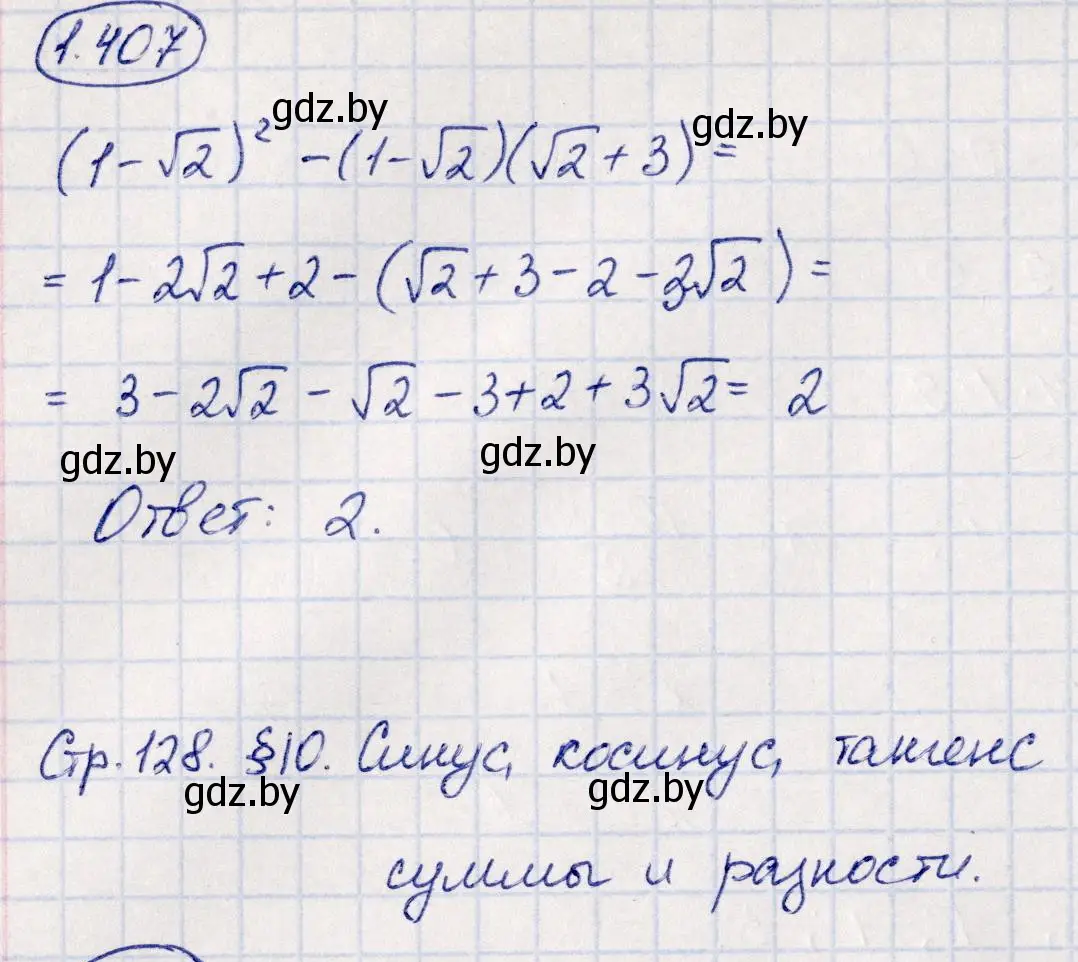 1.407
gdz.by
gdz.by
(1-√2)² -(1-√2)(√2+3)=
= 1-2√2+2-(√2+3-2-3√2)=
= 3-2√2-√2-3+2+3√2= 2
gdz.by
gdz.by
Ответ: 2.
Стр.128. §10. Синус, косинус, тангенс
gdz.by
gdz.by
суммы и разности.